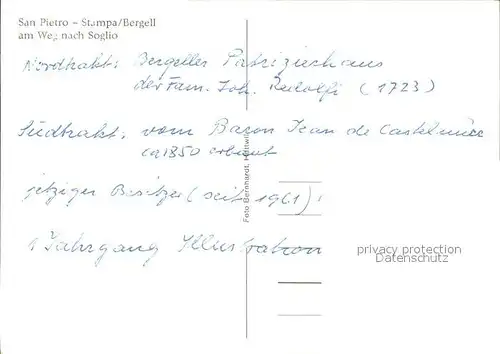 San Pietro – Stampa/Bergell
am Weg nach Soglio
Nordtrakt: Bergeller Patrizierhaus
der Fam. Joh. Redolfi (1723)
Südtrakt: vom Baron Jean de Castelmur
ca 1850 erbaut
jetziger Besitzer (seit 1961):
1 Jahrgang Illustration
Foto Bernhardt,
privacy protection
Datenschutz